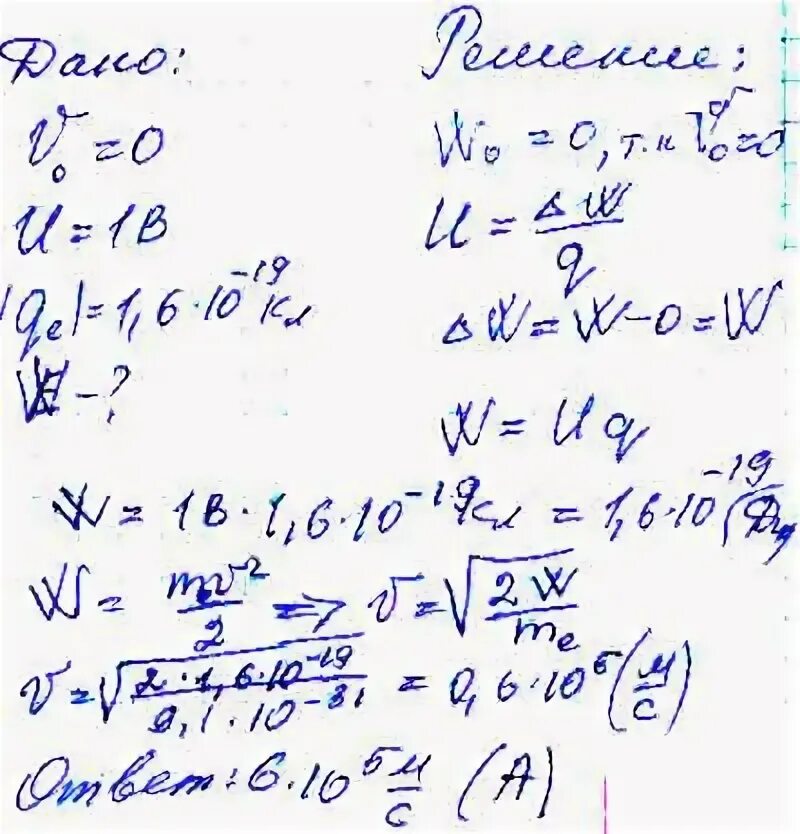 Дано:
V₀ = 0
U = 1В
|qₑ| = 1,6·10⁻¹⁹ Кл
W – ?
Решение:
W₀ = 0, т.к V₀ = 0
U = ΔW/q
ΔW = W – 0 = W
W = Uq
W = 1В·1,6·10⁻¹⁹ Кл = 1,6·10⁻¹⁹ (Дж)
W = mv²/2 => v = √(2W/mₑ)
v = √(2·1,6·10⁻¹⁹/9,1·10⁻³¹) = 0,6·10⁶ (м/с)
Ответ: 6·10⁵ м/с (А)